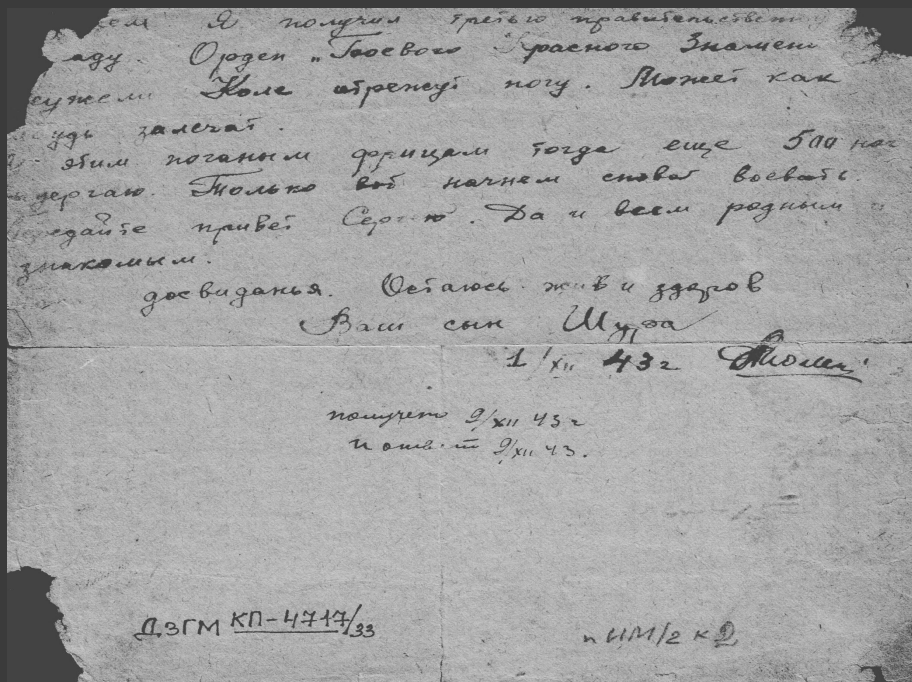 Я получил третью правительствен
аду. Орден „Боевого Красного Знамени
еужели Коле отрежут ногу. Может как
удь залечат.
этим поганым фрицам тогда еще 500 ног
дергаю. Только вот начнем снова воевать.
ередайте привет Сергею. Да и всем родным и
знакомым.
досвиданья. Остаюсь жив и здоров
Ваш сын Шура
1/XII 43 г
получено 9/XII 43 г
и ответ 9/XII 43.
ДЗГМ КП-4717/33